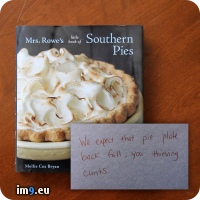 Mrs. Rowe's little book of
Southern
Pies
Mollie Cox Bryan
We expect that pie plate
back full, you thieving
im9.eu